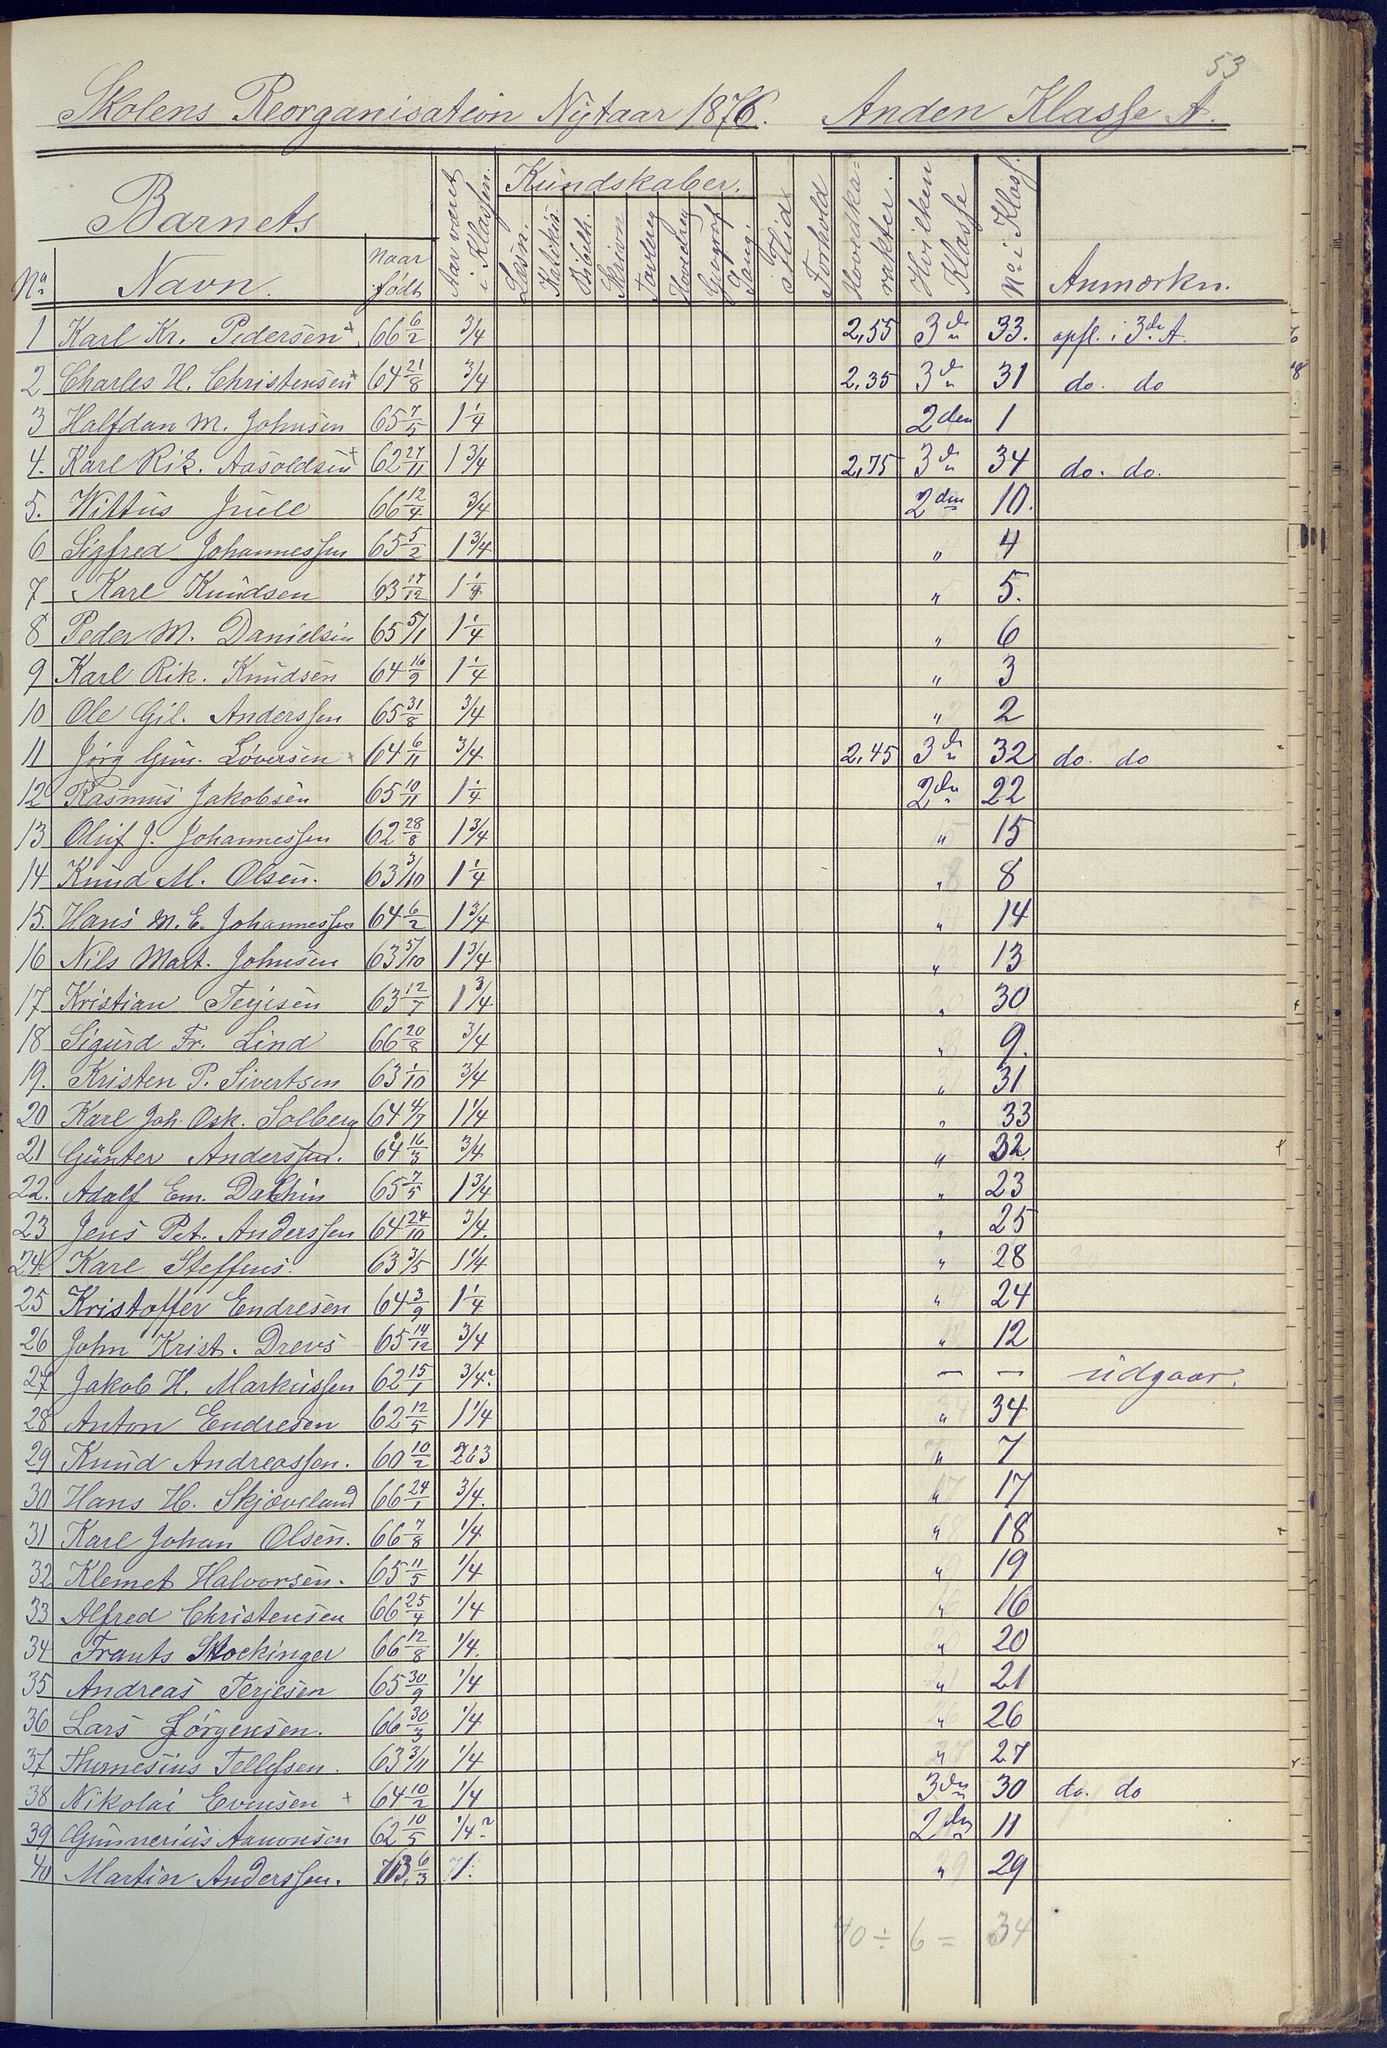 53
Skolens Reorganisation Nytaar 1876. Anden Klasse A.
Barnets
Aar været i Klassen.
Kundskaber.
Flid
Forhold
Hovedkarakter.
Hvilken Klasse
No i Klass.
No Navn. Naar født Læsn. Katekis. Bibelh. Skrivn Tavlereg Hovedreg Geograf Sang. Anmærkn.
1 Karl Kr. Pedersen + 66 6/2 3/4 2,55 3de 33. opfl. i 3de A.
2 Charles H. Christensen + 64 21/8 3/4 2,35 3de 31 do. do
3 Halfdan M. Johnsen 65 7/5 1 1/4 2den 1
4. Karl Rik. Aasoldsen + 62 27/11 1 3/4 2,75 3de 34 do. do.
5. Wittus Juell 66 12/4 3/4 2den 10.
6 Sigfred Johannessen 65 5/2 1 3/4 " 4
7 Karl Knudsen 63 17/12 1 1/4 " 5.
8 Peder M. Danielsen 65 5/1 1 1/4 " 6
9 Karl Rik. Knudsen 64 16/9 1 1/4 " 3
10 Ole Gil. Anderssen 65 31/8 3/4 " 2
11 Jørg Gun. Løversen + 64 6/11 3/4 2,45 3de 32 do. do
12 Rasmus Jakobsen 65 10/11 1 1/4 2den 22
13 Oluf J. Johannessen 62 28/8 1 3/4 " 15
14 Knud M. Olsen. 63 3/10 1 1/4 " 8
15. Hans M. E. Johannessen 64 6/2 1 3/4 " 14
16 Nils Mart. Johnsen 63 5/10 1 3/4 " 13
17 Kristian Terjesen 63 12/7 1 3/4 " 30
18 Sigurd Fr. Lind 66 20/8 3/4 " 9.
19. Kristen P. Sivertsen 63 1/10 3/4 " 31
20 Karl Joh. Osk. Solberg 64 4/7 1 1/4 " 33
21 Günter Anderssen. 64 16/3 3/4 " 32
22. Adolf Em. Dakhin 65 7/5 1 3/4 " 23
23 Jens Pet. Anderssen 64 24/10 3/4. " 25
24. Karl Steffens. 63 3/5 1 1/4 " 28
25 Kristoffer Endresen 64 3/9 1 1/4 " 24
26 John Krist. Drevs 65 14/12 3/4 " 12
27 Jakob H. Markussen 62 15/1 3/4? — — udgaar.
28 Anton Endresen 62 12/5 1 1/4 " 34
29 Knud Andreassen. 60 10/2 263 " 7
30 Hans H. Skjæveland 66 24/1 3/4. " 17
31 Karl Johan Olsen. 66 7/8 1/4 " 18
32 Klemet Halvorsen. 65 11/5 1/4 " 19
33 Alfred Christensen 66 25/4 1/4 " 16
34 Frants Stockinger 66 12/8 1/4. " 20
35 Andreas Terjesen 65 30/9 1/4 " 21
36 Lars Jørgensen. 66 30/3 1/4 " 26
37 Thomesius Tellefsen. 63 3/11 1/4 " 27
38 Nikolai Evensen + 64 10/2 1/4 3den 30 do. do
39 Gunnerius Aanonsen 62 10/5 1/4? 2den 11
40 Martin Anderssen. 63 6/3 1. " 29
40 ÷ 6 = 34